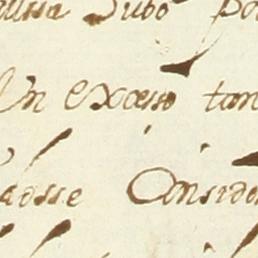 Dubo
Un excesso tan
adsse Consido